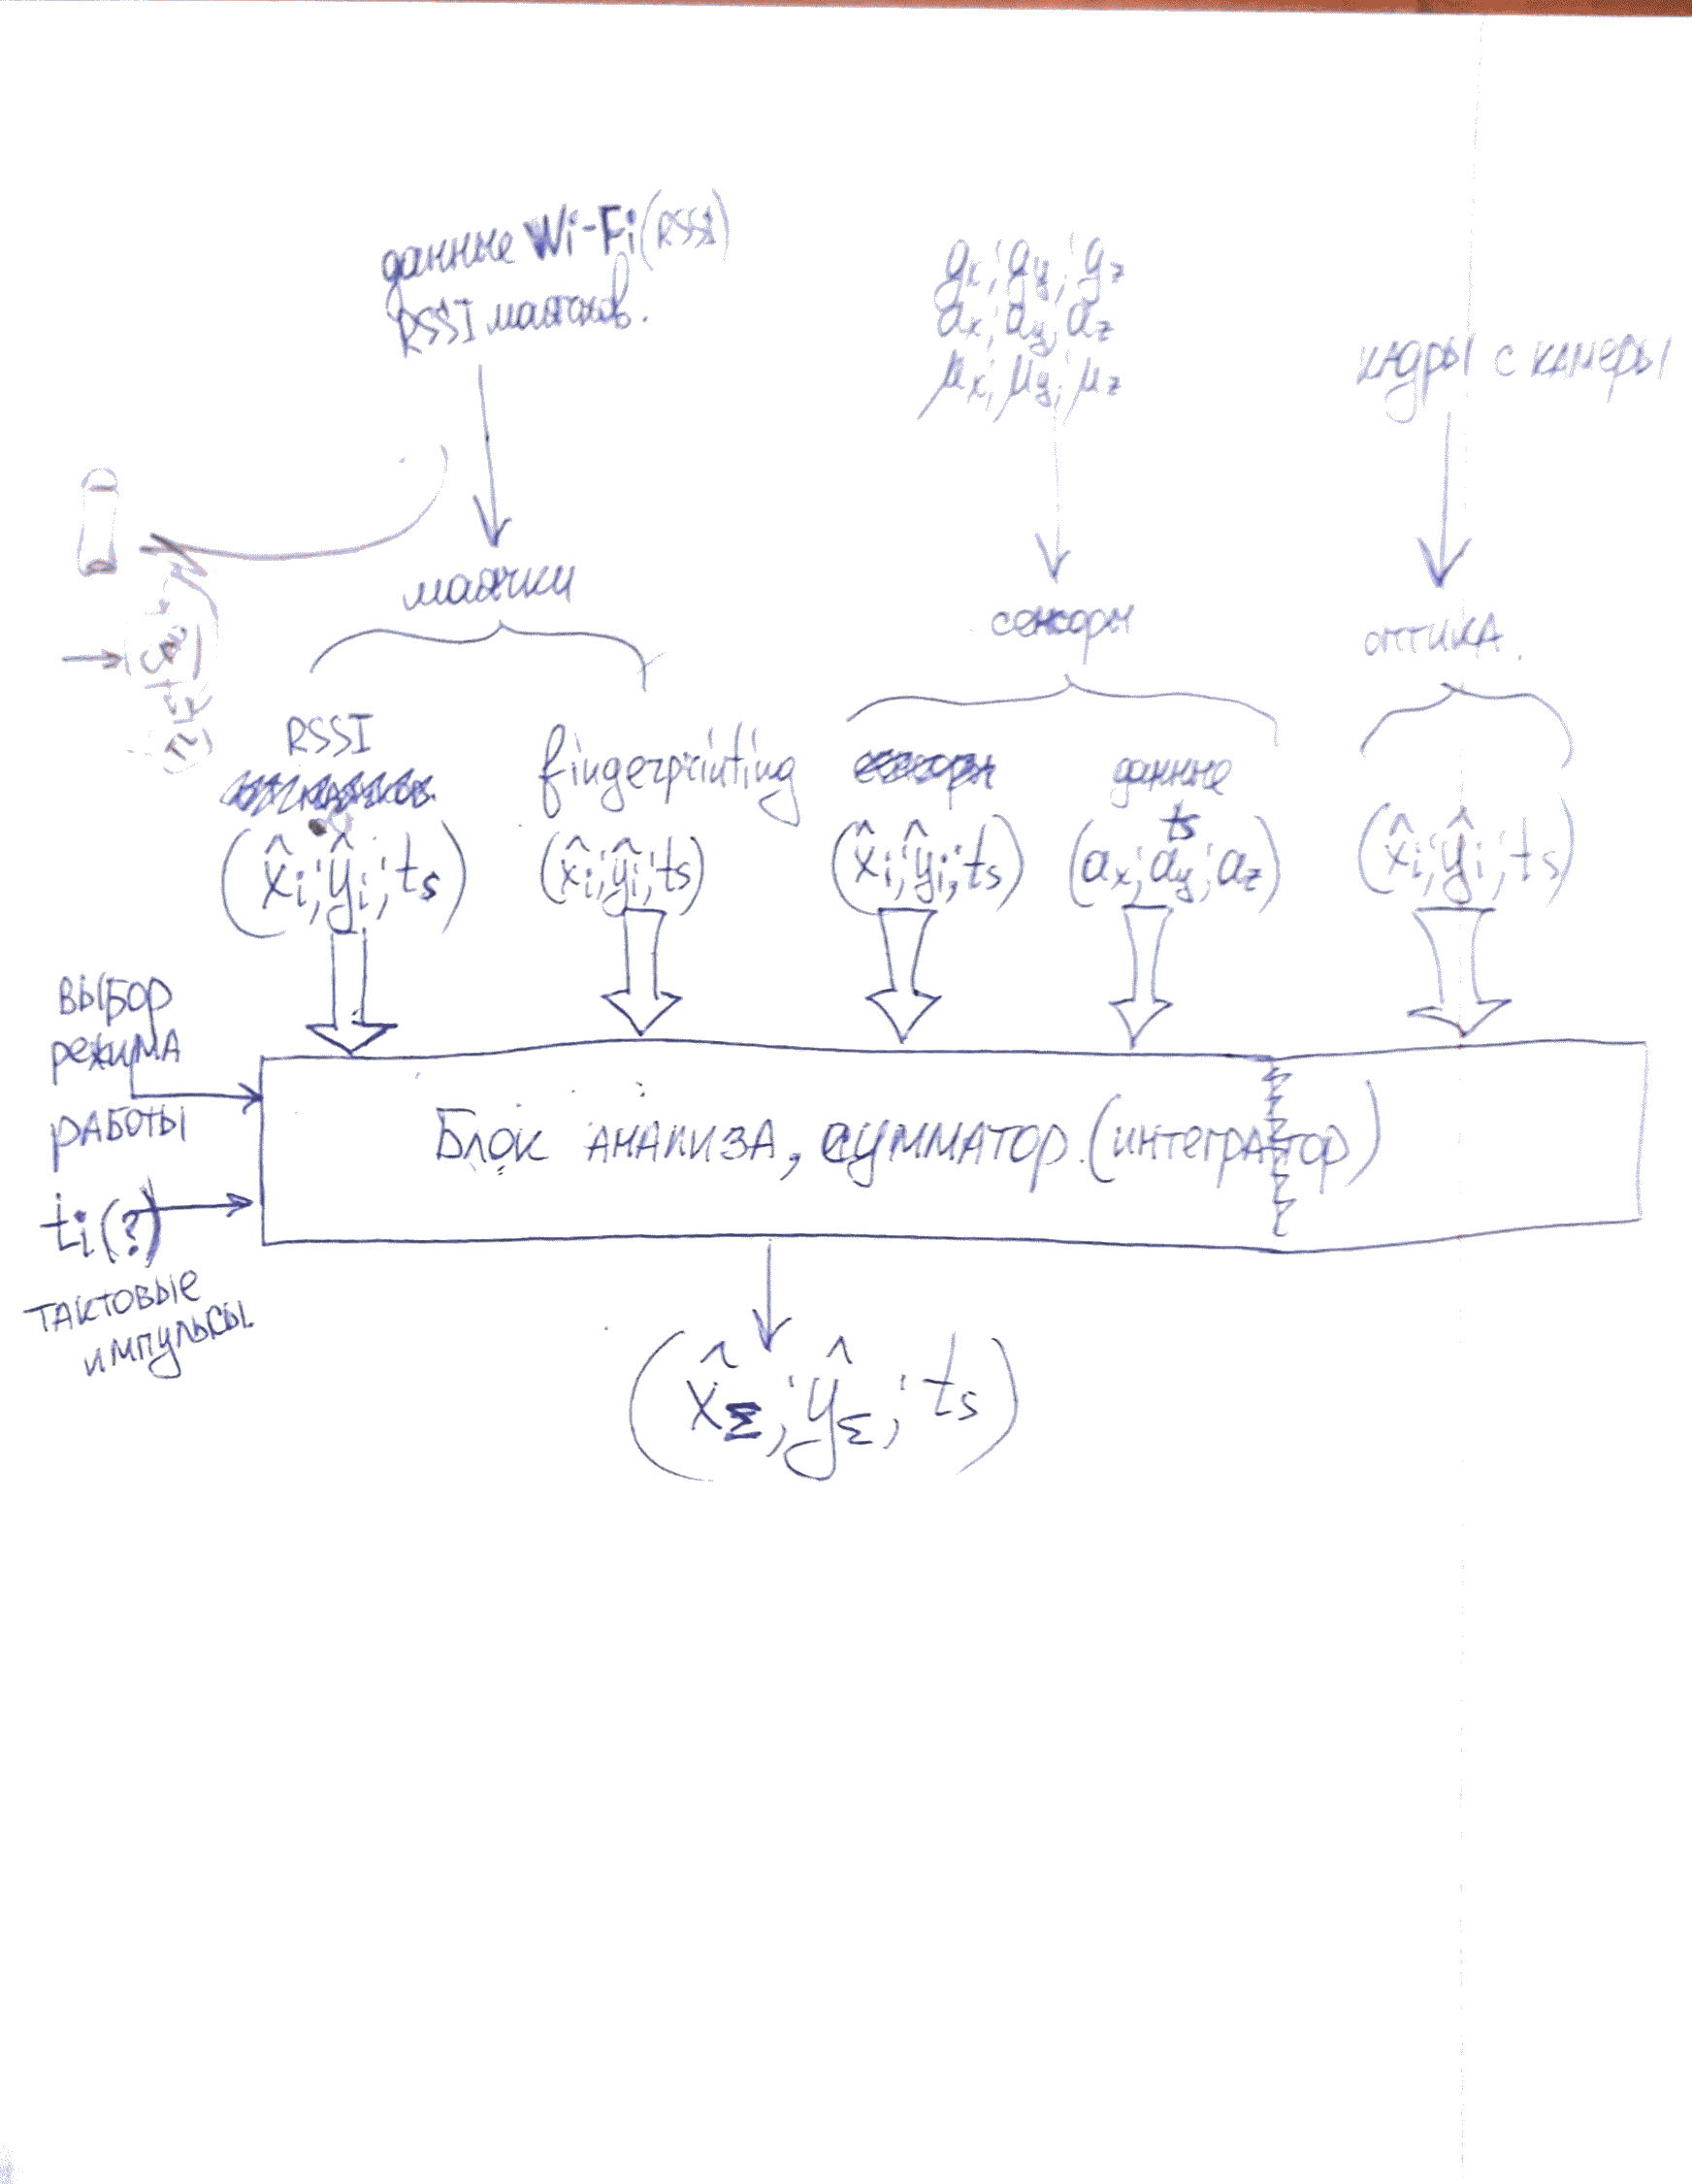 данные Wi-Fi (RSSI)
RSSI маячков.
gx; gy; gz
ax; ay; az
μx; μy; μz
кадры с камеры
маячки
сенсоры
оптика.
RSSI
fingerprinting
данные
ts
(x̂i; ŷi; ts)
(x̂i; ŷi; ts)
(x̂i; ŷi; ts)
(ax; ay; az)
(x̂i; ŷi; ts)
выбор
режима
работы
ti(?)
тактовые
импульсы.
Блок анализа, сумматор. (интегратор)
(x̂Σ; ŷΣ; ts)